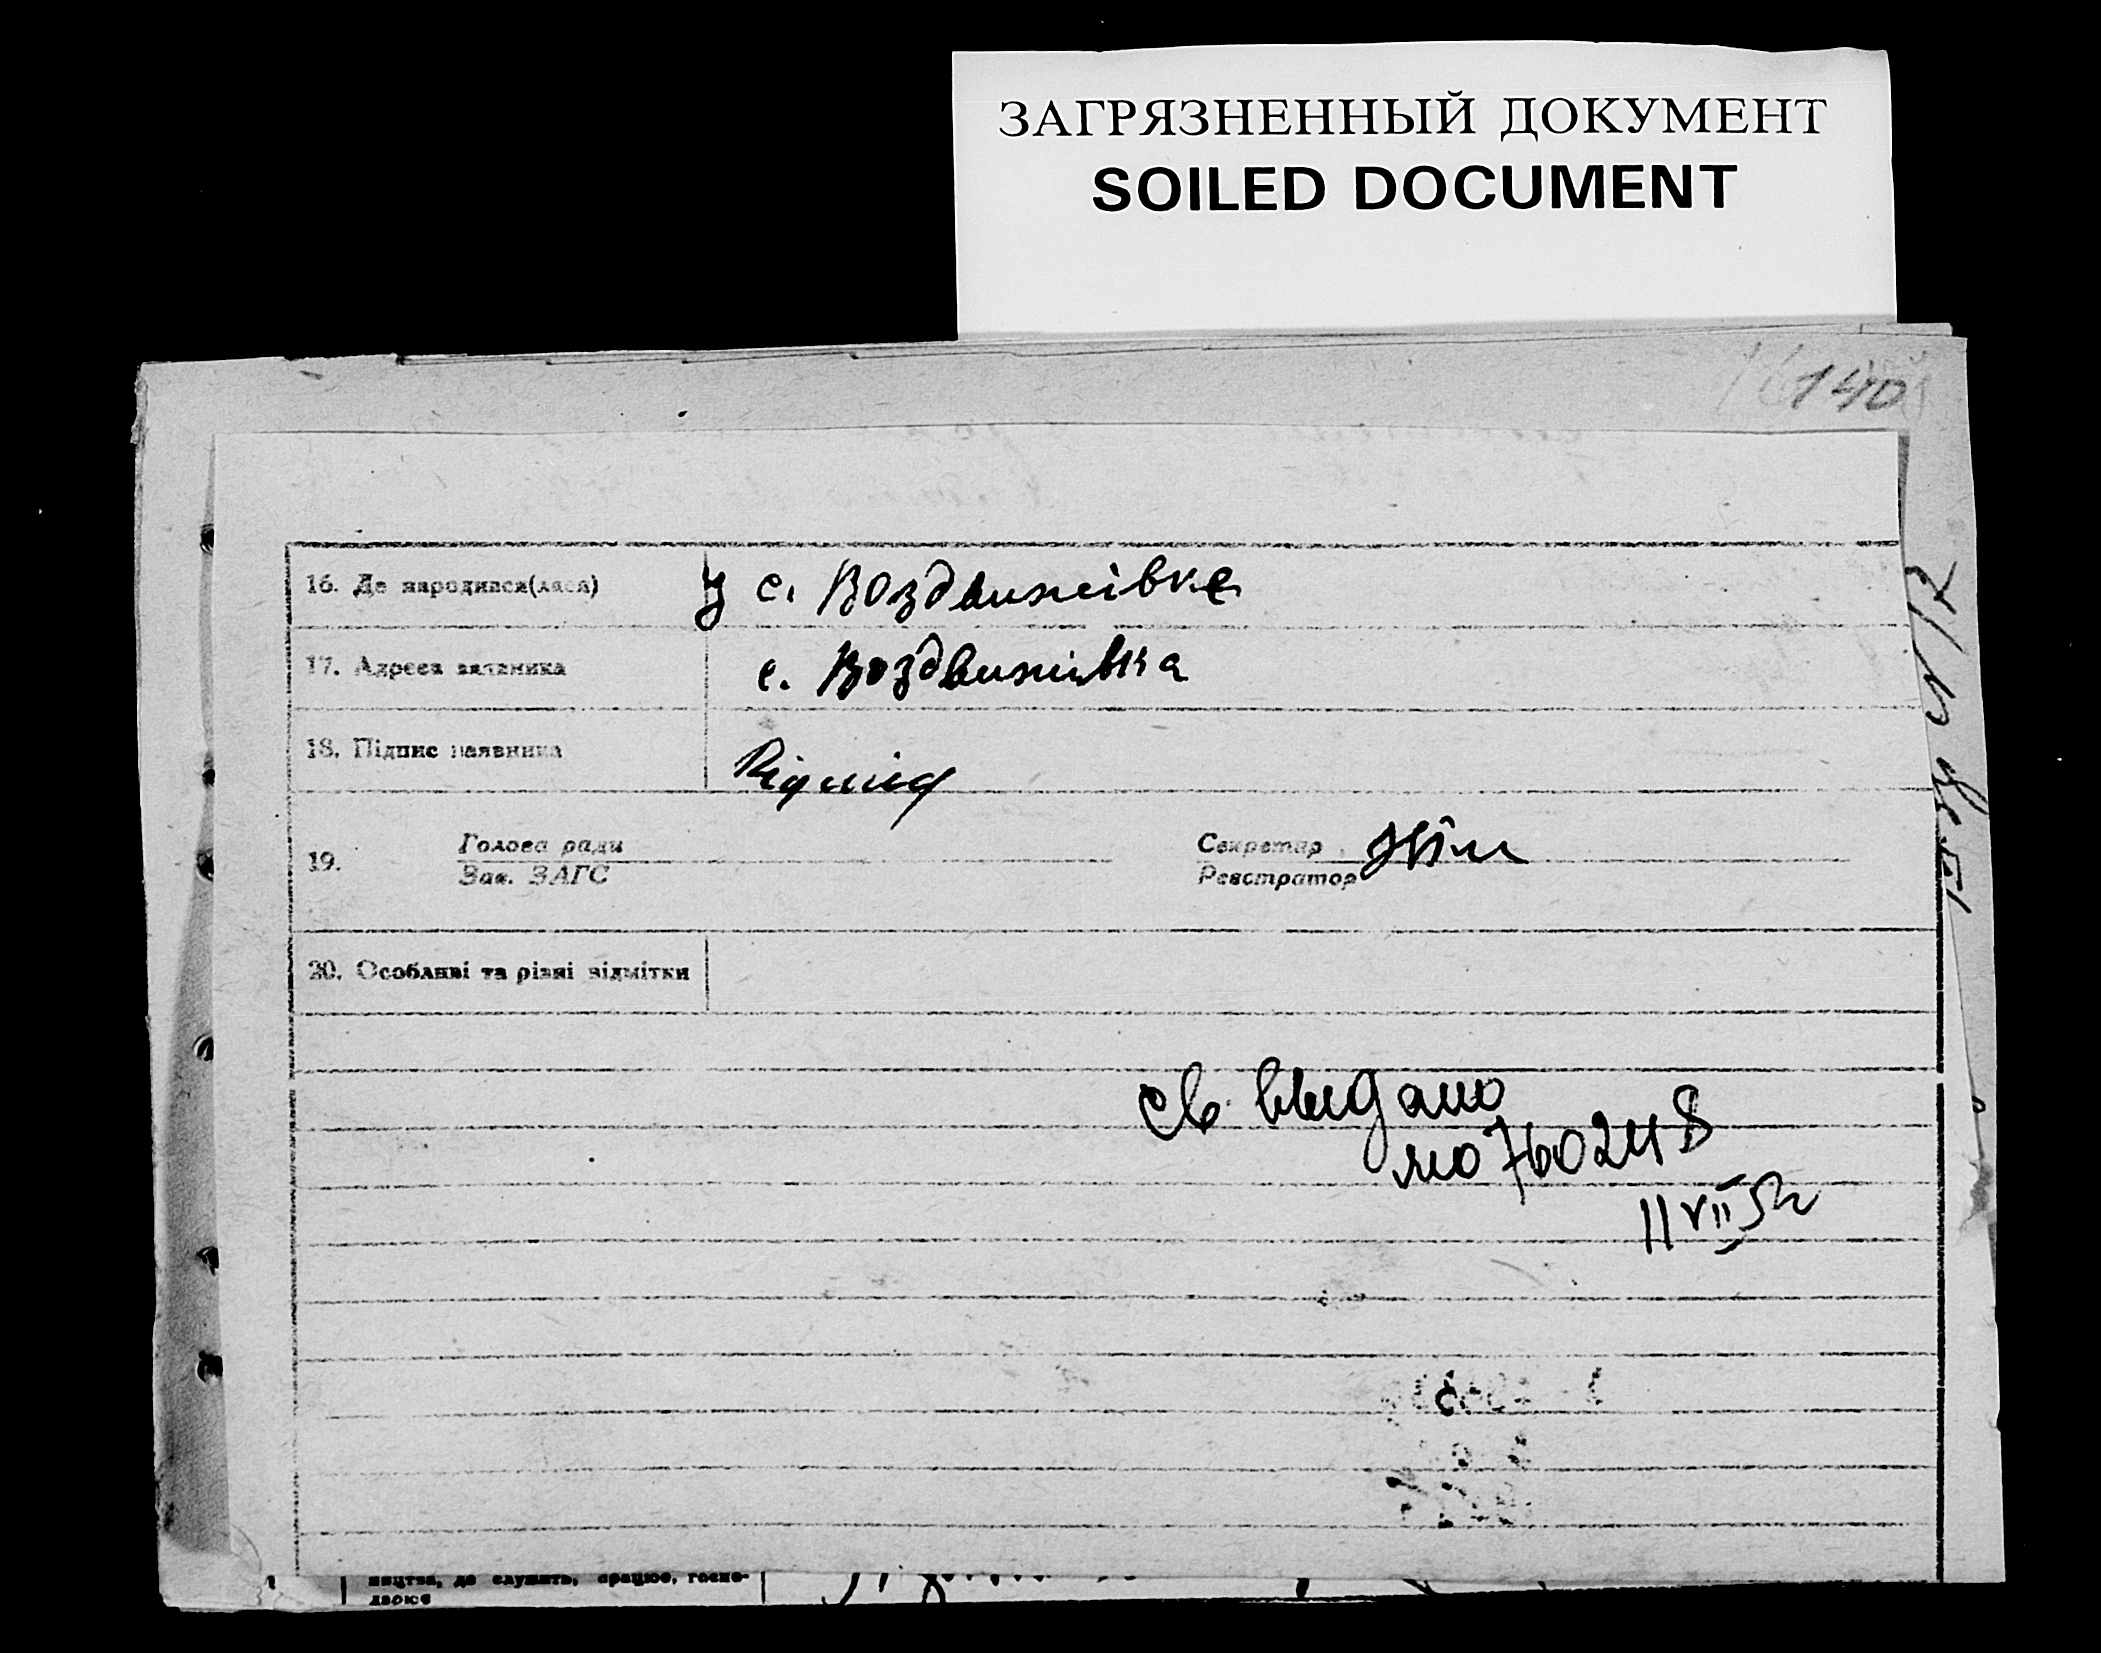 ЗАГРЯЗНЕННЫЙ ДОКУМЕНТ
SOILED DOCUMENT
140
16. Де народився(лася) у с. Воздвижівке
17. Адреса заявника с. Воздвижівка
18. Підпис заявника
19. Голова ради Секретар
Зав. ЗАГС Реєстратор
20. Особливі та різні відмітки
св. выдано
11 VII 52
ництва, де служить, працює, госпо-
дарює